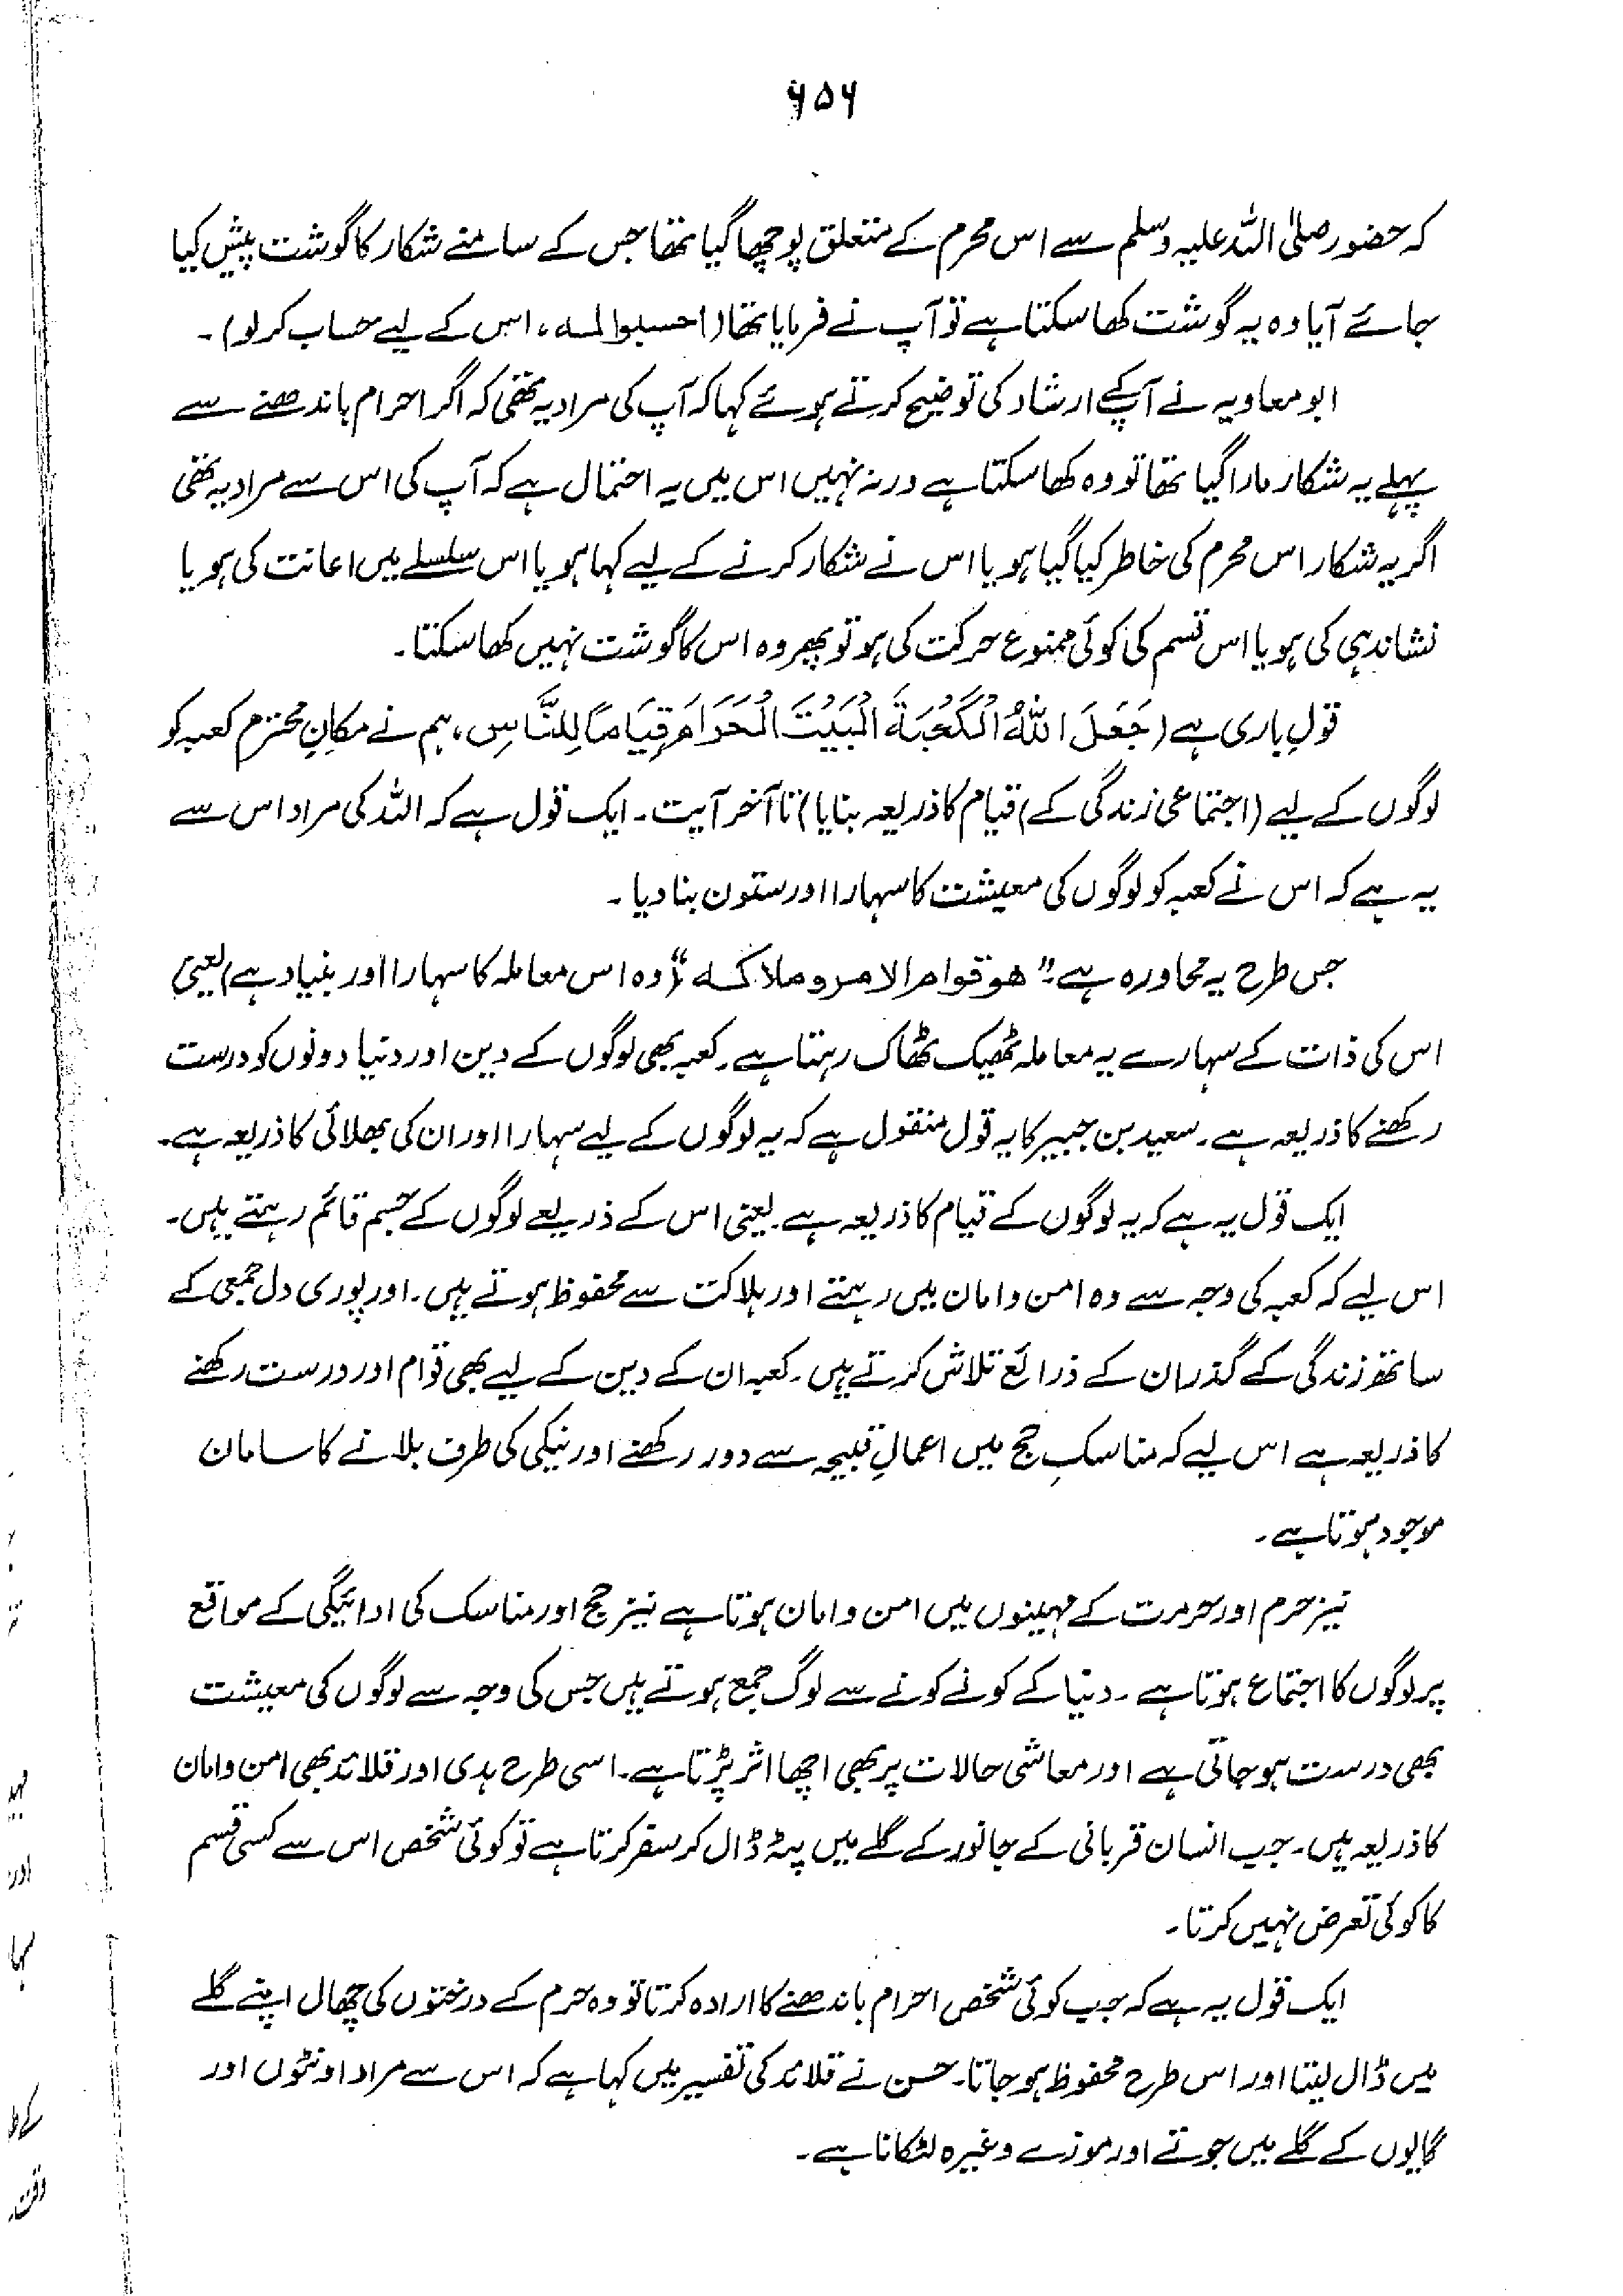 ۶۵۶
کہ حضور صلی اللہ علیہ وسلم سے اس محرم کے متعلق پوچھا گیا تھا جس کے سامنے شکار کا گوشت پیش کیا
جائے آیا وہ یہ گوشت کھا سکتا ہے تو آپ نے فرمایا تھا (احسبوا لہ، اس کے لیے حساب کر لو)۔
ابو معاویہ نے آپ کے ارشاد کی توضیح کرتے ہوئے کہا کہ آپ کی مراد یہ تھی کہ اگر احرام باندھنے سے
پہلے یہ شکار مارا گیا تھا تو وہ کھا سکتا ہے ورنہ نہیں اس میں یہ احتمال ہے کہ آپ کی اس سے مراد یہ تھی
اگر یہ شکار اس محرم کی خاطر کیا گیا ہو یا اس نے شکار کرنے کے لیے کہا ہو یا اس سلسلے میں اعانت کی ہو یا
نشاندہی کی ہو یا اس قسم کی کوئی ممنوع حرکت کی ہو تو پھر وہ اس کا گوشت نہیں کھا سکتا۔
قولِ باری ہے (جَعَلَ اللّٰہُ الْکَعْبَۃَ الْبَیْتَ الْحَرَامَ قِیَامًا لِلنَّاسِ، ہم نے مکانِ محترم کعبہ کو
لوگوں کے لیے (اجتماعی زندگی کے) قیام کا ذریعہ بنایا) تا آخر آیت۔ ایک قول ہے کہ اللہ کی مراد اس سے
یہ ہے کہ اس نے کعبہ کو لوگوں کی معیشت کا سہارا اور ستون بنا دیا۔
جس طرح یہ محاورہ ہے "ھو قوام الامر و ملاکہ" (وہ اس معاملہ کا سہارا اور بنیاد ہے) یعنی
اس کی ذات کے سہارے یہ معاملہ ٹھیک ٹھاک رہتا ہے۔ کعبہ بھی لوگوں کے دین اور دنیا دونوں کو درست
رکھنے کا ذریعہ ہے۔ سعید بن جبیر کا یہ قول منقول ہے کہ یہ لوگوں کے لیے سہارا اور ان کی بھلائی کا ذریعہ ہے۔
ایک قول یہ ہے کہ یہ لوگوں کے قیام کا ذریعہ ہے۔ یعنی اس کے ذریعے لوگوں کے جسم قائم رہتے ہیں۔
اس لیے کہ کعبہ کی وجہ سے وہ امن و امان میں رہتے اور ہلاکت سے محفوظ ہوتے ہیں۔ اور پوری دل جمعی کے
ساتھ زندگی کے گذران کے ذرائع تلاش کرتے ہیں۔ کعبہ ان کے دین کے لیے بھی قوام اور درست رکھنے
کا ذریعہ ہے اس لیے کہ مناسکِ حج میں اعمالِ قبیحہ سے دور رکھنے اور نیکی کی طرف بلانے کا سامان
موجود ہوتا ہے۔
نیز حرم اور حرمت کے مہینوں میں امن و امان ہوتا ہے نیز حج اور مناسک کی ادائیگی کے مواقع
پر لوگوں کا اجتماع ہوتا ہے۔ دنیا کے کونے کونے سے لوگ جمع ہوتے ہیں جس کی وجہ سے لوگوں کی معیشت
بھی درست ہو جاتی ہے اور معاشی حالات پر بھی اچھا اثر پڑتا ہے۔ اسی طرح ہدی اور قلائد بھی امن و امان
کا ذریعہ ہیں۔ جب انسان قربانی کے جانور کے گلے میں پٹہ ڈال کر سفر کرتا ہے تو کوئی شخص اس سے کسی قسم
کا کوئی تعرض نہیں کرتا۔
ایک قول یہ ہے کہ جب کوئی شخص احرام باندھنے کا ارادہ کرتا تو وہ حرم کے درختوں کی چھال اپنے گلے
میں ڈال لیتا اور اس طرح محفوظ ہو جاتا۔ حسن نے قلائد کی تفسیر میں کہا ہے کہ اس سے مراد اونٹوں اور
گایوں کے گلے میں جوتے اور موزے وغیرہ لٹکانا ہے۔